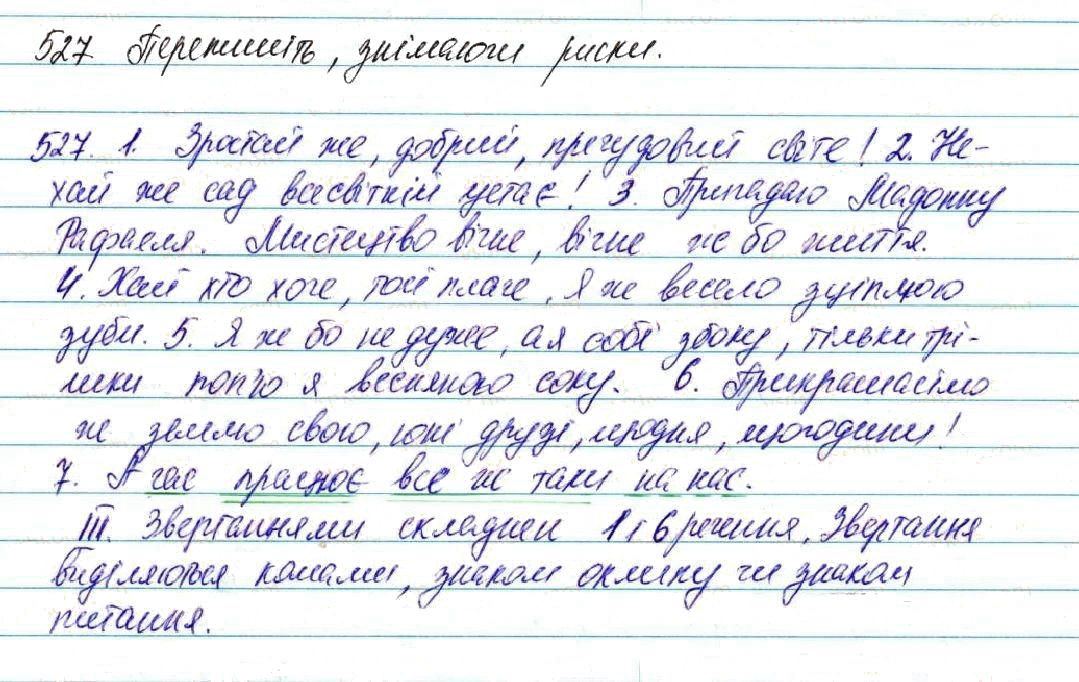 527 Перепишіть, знімаючи риски.
527. 1. Зростай же, добрий, пречудовий світе! 2. Не-
хай же сад всесвітній цвітає! 3. Пригадаю Мадонну
Рафаеля. Мистецтво вічне, вічне ж бо життя.
4. Хай хто хоче, той плаче, я ж весело зціплюю
зуби. 5. Я ж бо не дуже, а я собі збоку, тільки трі-
шки поп'ю я весняного соку. 6. Прикрашаймо
ж землю свою, юні друзі, щодня, щогодини!
7. А час працює все ж таки на нас.
III. Звертаннями складнен 1 і 6 речення. Звертання
виділяються комами, знаком оклику чи знаком
питання.